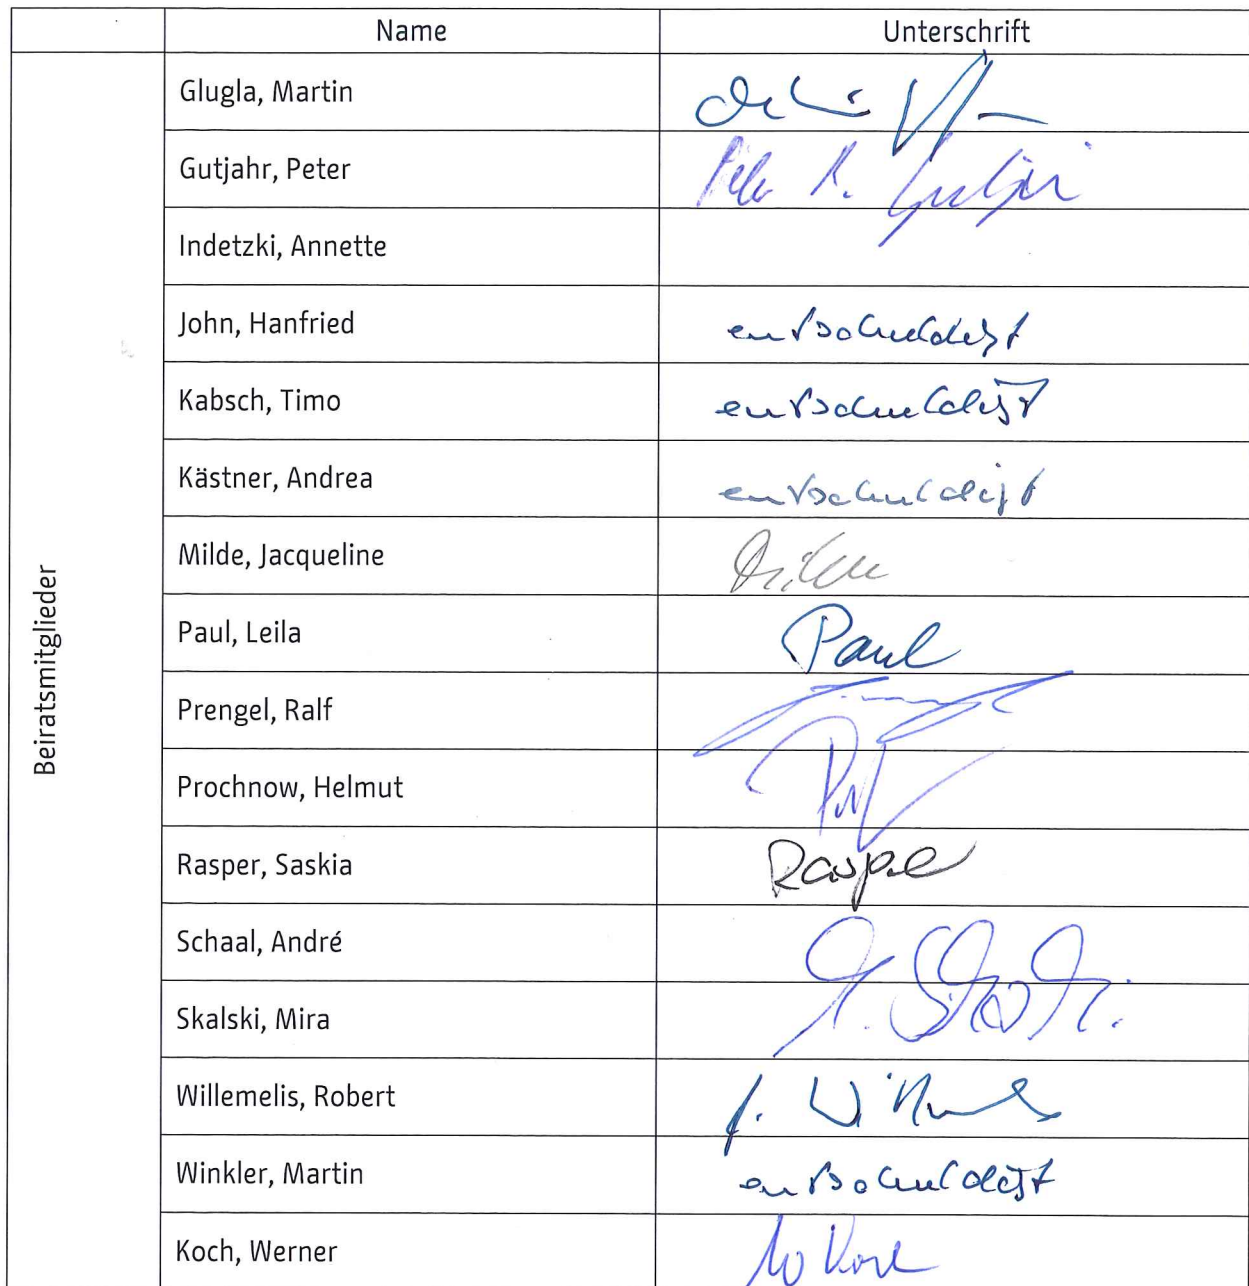 Name Unterschrift
Beiratsmitglieder
Glugla, Martin
Gutjahr, Peter Peter R. Gutjahr
Indetzki, Annette
John, Hanfried entschuldigt
Kabsch, Timo entschuldigt
Kästner, Andrea entschuldigt
Milde, Jacqueline Milde
Paul, Leila Paul
Prengel, Ralf
Prochnow, Helmut
Rasper, Saskia Rasper
Schaal, André
Skalski, Mira M. Skalski
Willemelis, Robert
Winkler, Martin entschuldigt
Koch, Werner W Koch